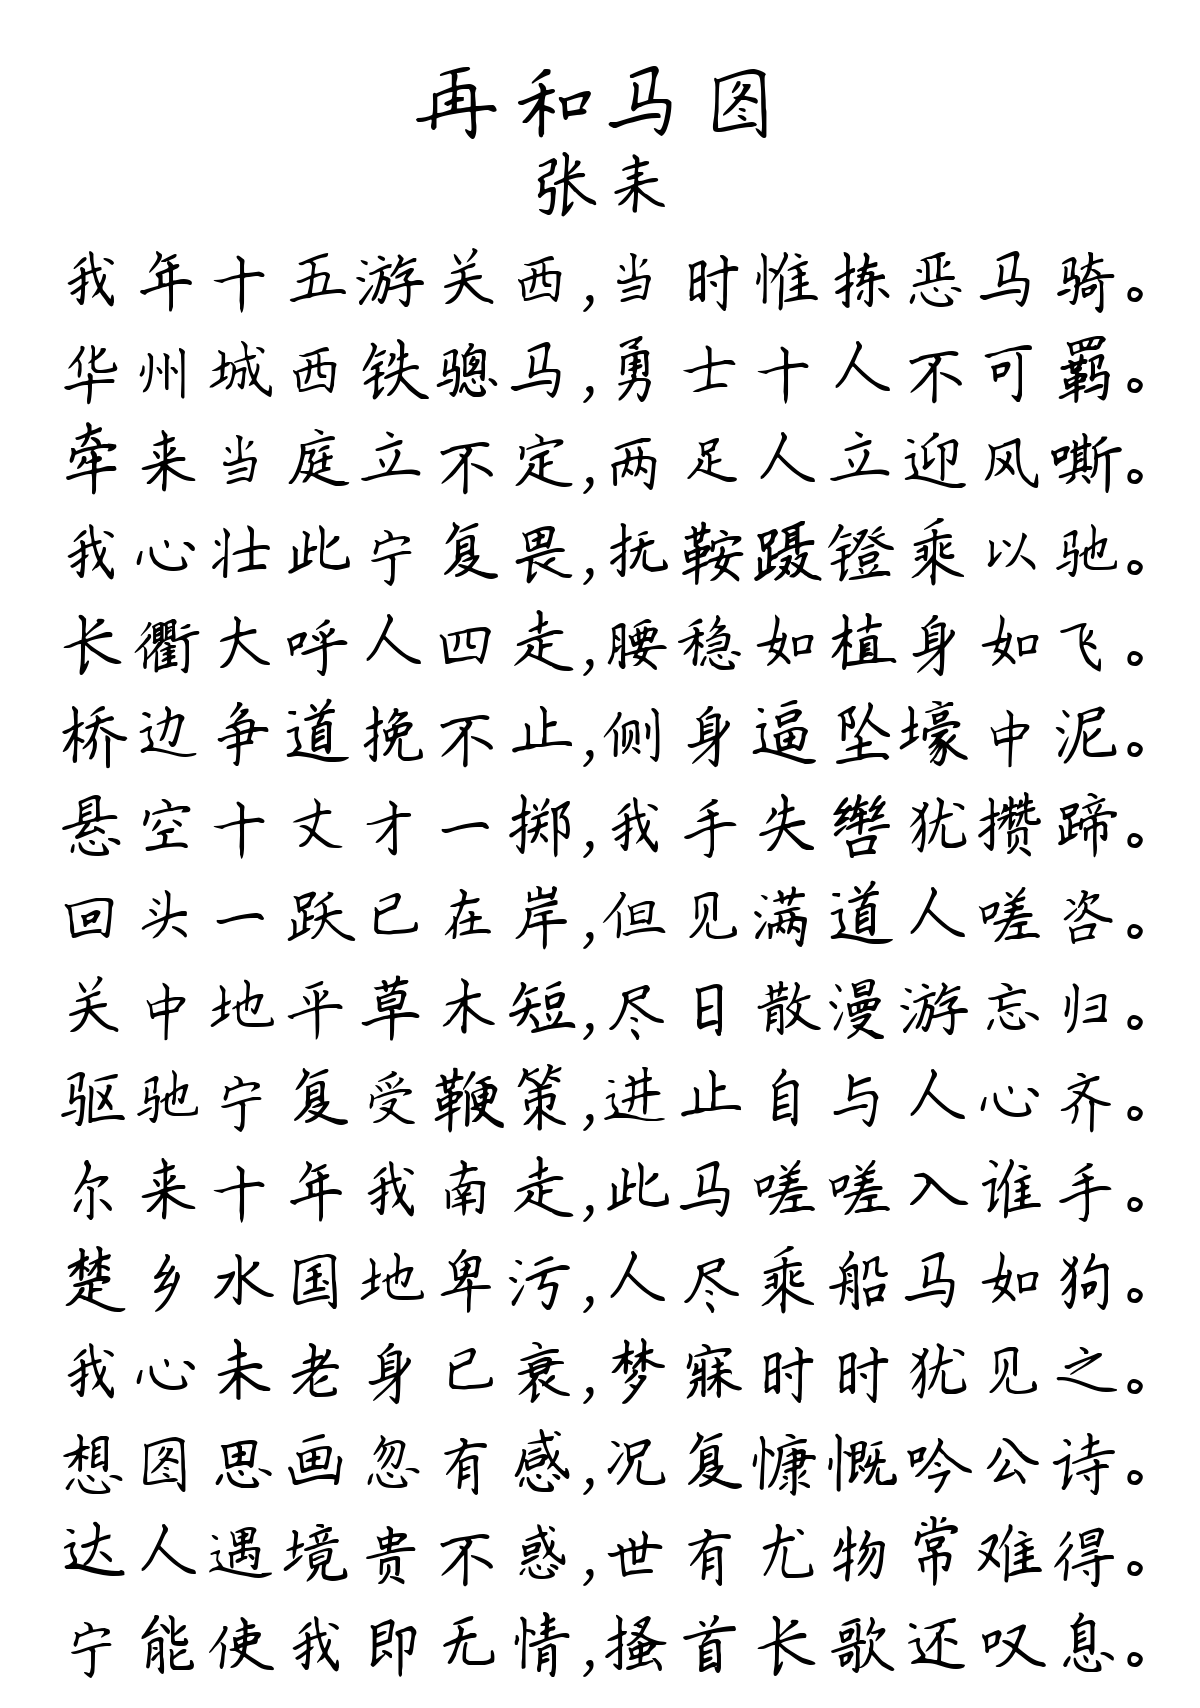 再和马图
张耒
我年十五游关西,当时惟拣恶马骑。
华州城西铁骢马,勇士十人不可羁。
牵来当庭立不定,两足人立迎风嘶。
我心壮此宁复畏,抚鞍蹑镫乘以驰。
长衢大呼人四走,腰稳如植身如飞。
桥边争道挽不止,侧身逼坠壕中泥。
悬空十丈才一掷,我手失辔犹攒蹄。
回头一跃已在岸,但见满道人嗟咨。
关中地平草木短,尽日散漫游忘归。
驱驰宁复受鞭策,进止自与人心齐。
尔来十年我南走,此马嗟嗟入谁手。
楚乡水国地卑污,人尽乘船马如狗。
我心未老身已衰,梦寐时时犹见之。
想图思画忽有感,况复慷慨吟公诗。
达人遇境贵不惑,世有尤物常难得。
宁能使我即无情,搔首长歌还叹息。